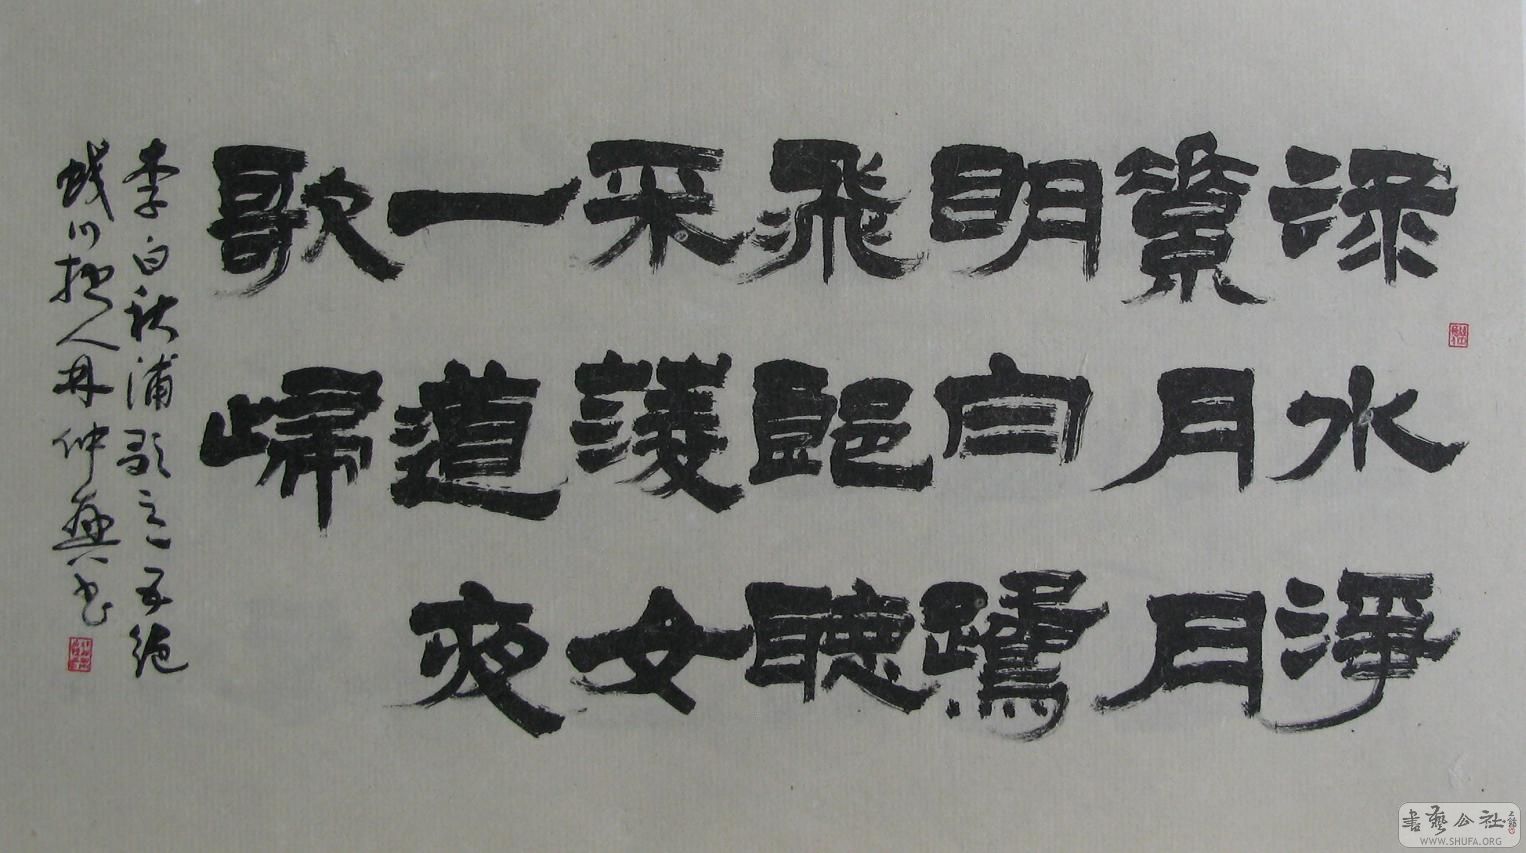 渌水淨
素月月
明白鷺
飛郎聽
采蔆女
一道夜
歌歸
李白秋浦歌之五絕
川人仲书
書藝公社
WWW.SHUFA.ORG